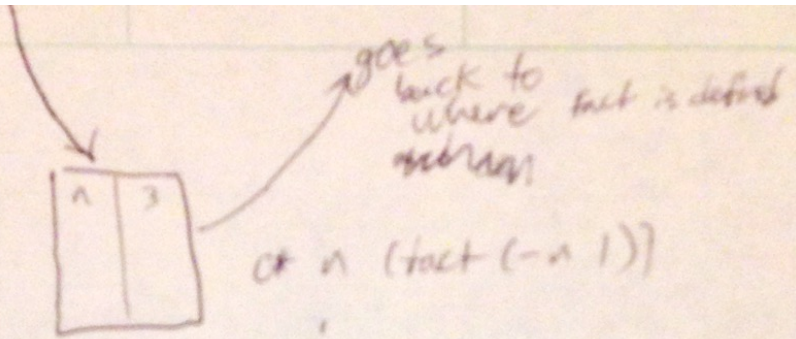 goes
back to
where fact is defined
n 3
(* n (fact (- n 1))